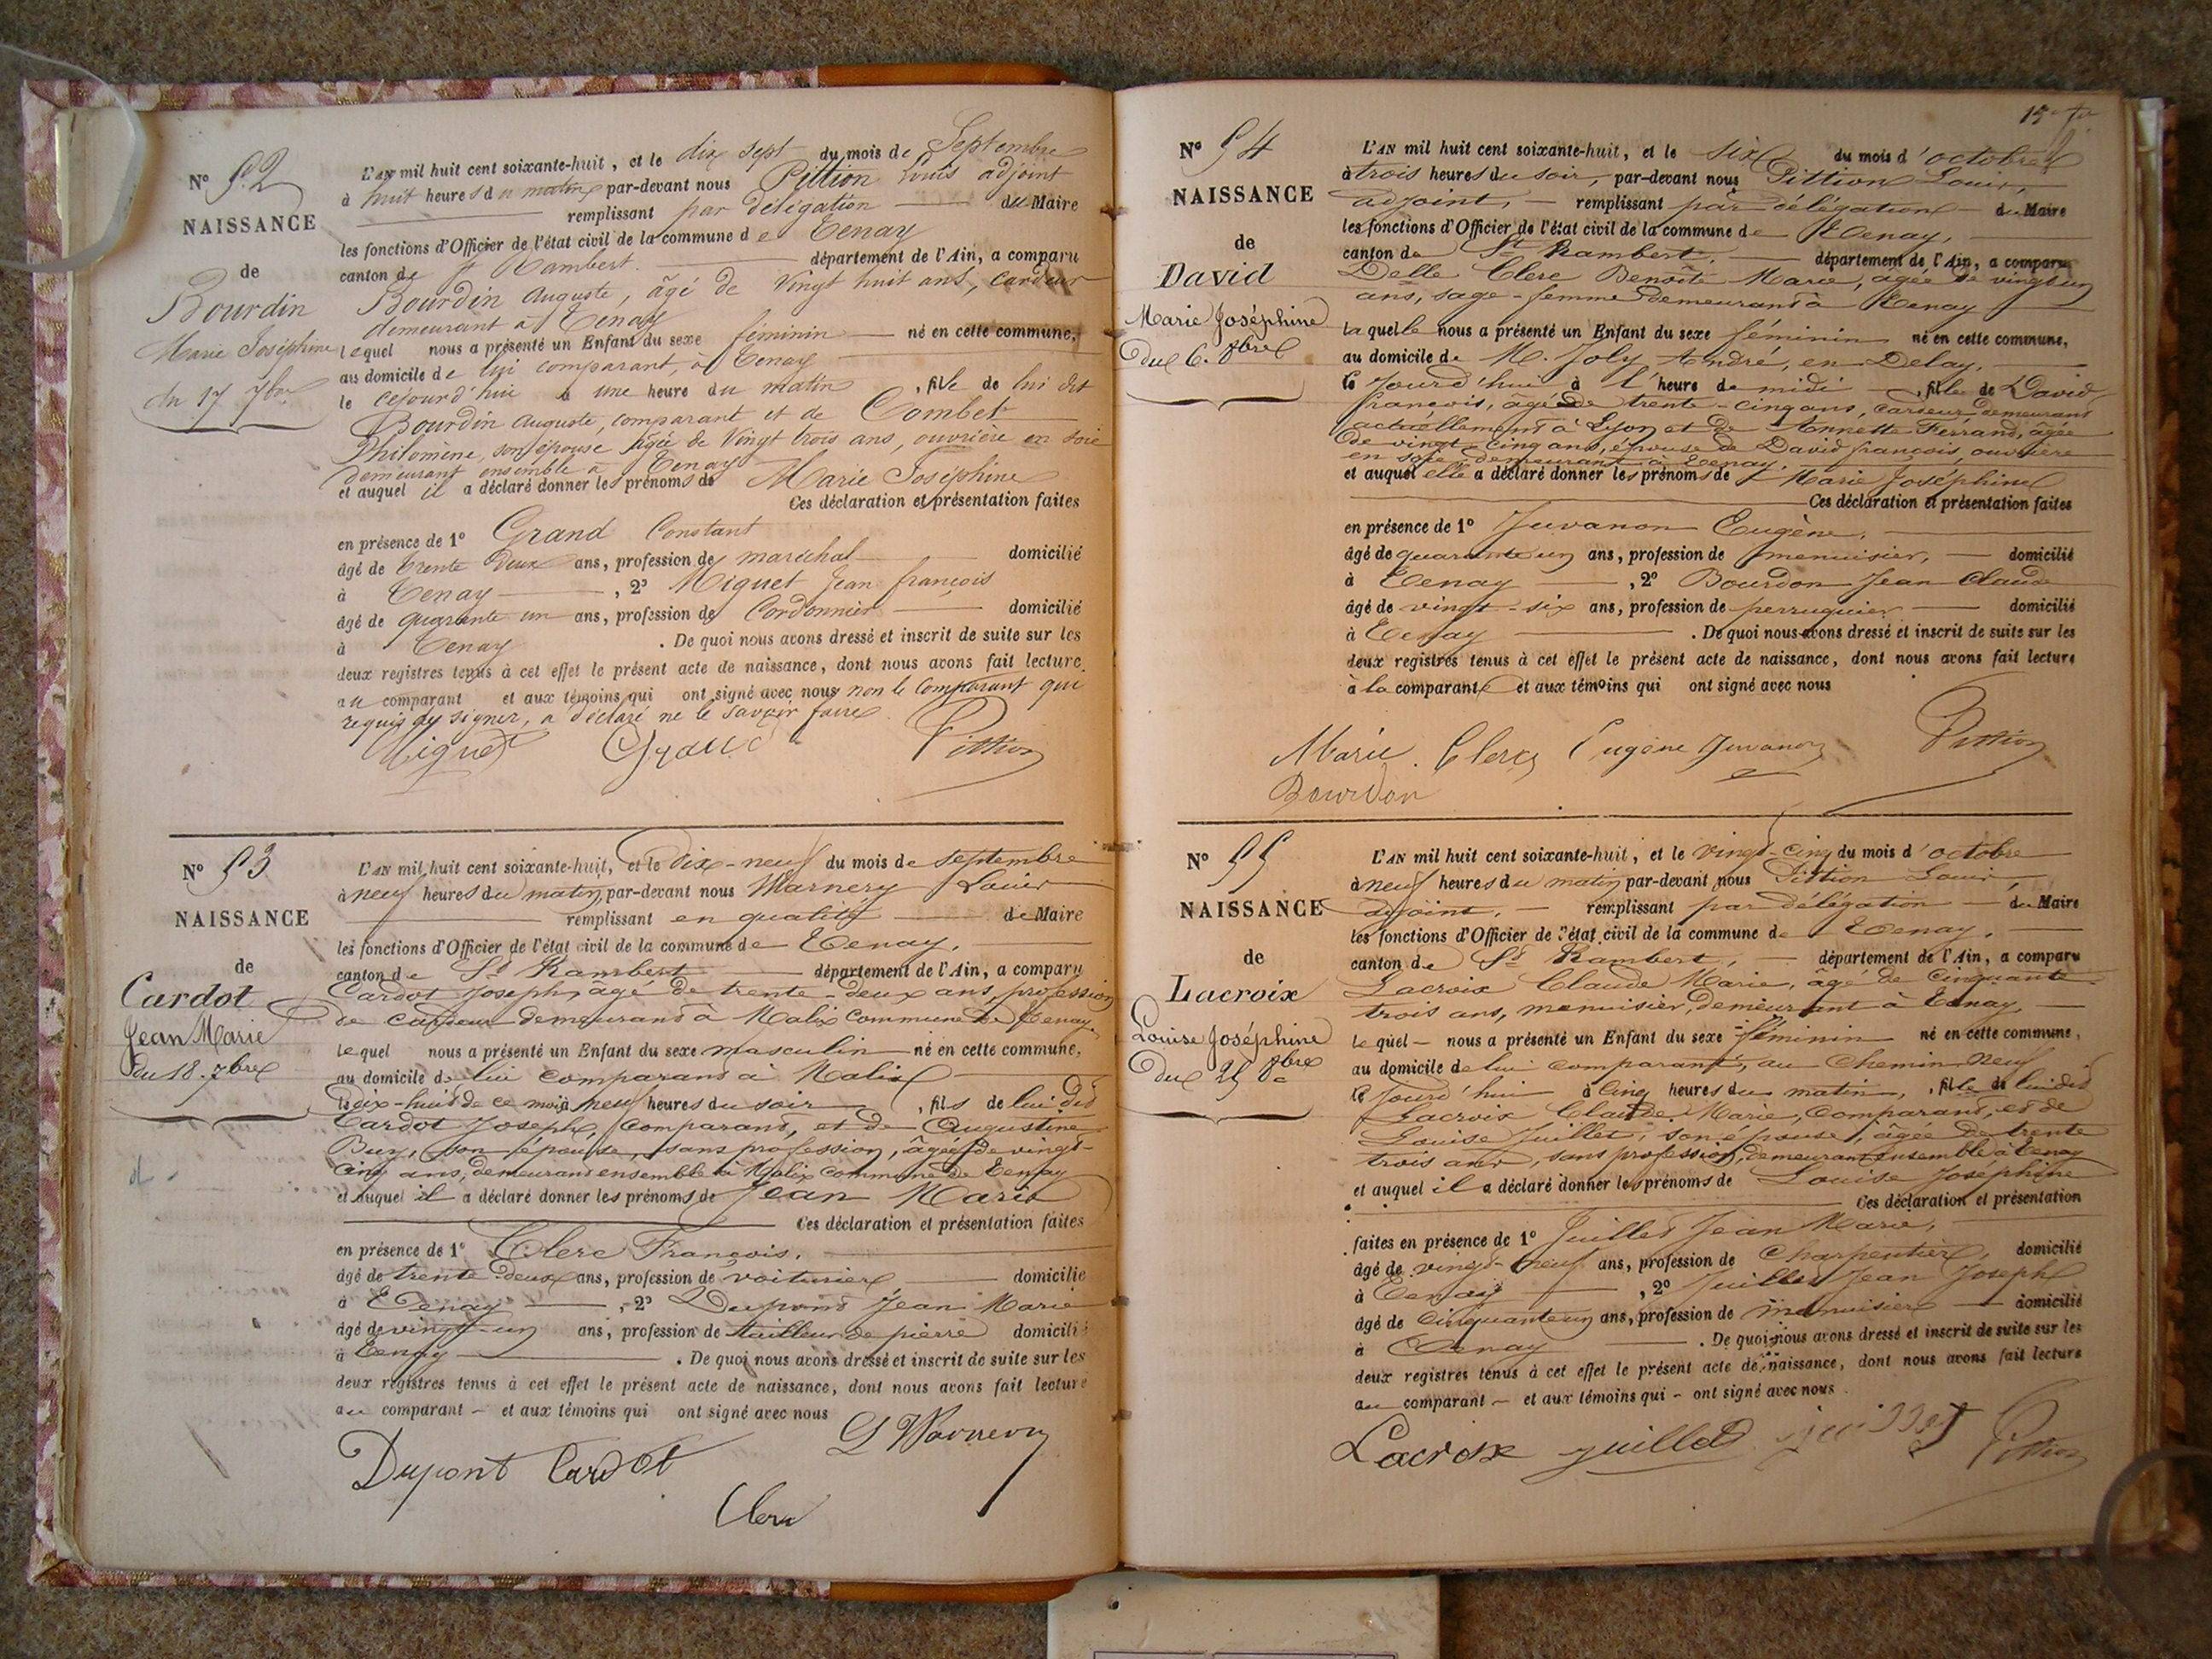 N° 52
NAISSANCE
de
Bourdin
Marie Joséphine
du 17 7bre
L'AN mil huit cent soixante-huit, et le dix sept du mois de Septembre
à huit heures du matin par-devant nous Pittion Louis adjoint
remplissant par délégation du Maire
les fonctions d'Officier de l'état civil de la commune de Tenay
canton de St Rambert. département de l'Ain, a comparu
Bourdin Auguste, âgé de Vingt huit ans, cardeur
demeurant à Tenay
lequel nous a présenté un Enfant du sexe féminin né en cette commune,
au domicile de lui comparant, à Tenay
le cejourd'hui à une heure du matin, fille de lui dit
Bourdin Auguste, comparant et de Combet
Philomène, son épouse âgée de Vingt trois ans, ouvrière en soie
demeurant ensemble à Tenay
et auquel il a déclaré donner les prénoms de Marie Joséphine
Ces déclaration et présentation faites
en présence de 1° Grand Constant
âgé de trente deux ans, profession de maréchal domicilié
à Tenay, 2° Miguet Jean françois
âgé de quarante un ans, profession de Cordonnier domicilié
à Tenay. De quoi nous avons dressé et inscrit de suite sur les
deux registres tenus à cet effet le présent acte de naissance, dont nous avons fait lecture
au comparant et aux témoins qui ont signé avec nous non le comparant qui
requis de signer, a déclaré ne le savoir faire
Miguet Grand Pittion
N° 53
NAISSANCE
de
Cardot
Jean Marie
du 18. 7bre
L'AN mil huit cent soixante-huit, et le dix-neuf du mois de septembre
à neuf heures du matin par-devant nous Warnery Louis
remplissant en qualité de Maire
les fonctions d'Officier de l'état civil de la commune de Tenay,
canton de St Rambert département de l'Ain, a comparu
Cardot Joseph, âgé de trente-deux ans, profession
de cardeur demeurant à Malix commune de Tenay
lequel nous a présenté un Enfant du sexe masculin né en cette commune,
au domicile de lui comparant à Malix
le dix-huit de ce mois à neuf heures du soir, fils de lui dit
Cardot Joseph, comparant, et de Augustine
Buy, son épouse, sans profession, âgée de vingt-
cinq ans, demeurant ensemble à Malix commune de Tenay
et auquel il a déclaré donner les prénoms de Jean Marie
Ces déclaration et présentation faites
en présence de 1° Clerc François,
âgé de trente-deux ans, profession de voiturier domicilié
à Tenay, 2° Dupont Jean Marie
âgé de vingt-un ans, profession de tailleur de pierre domicilié
à Tenay. De quoi nous avons dressé et inscrit de suite sur les
deux registres tenus à cet effet le présent acte de naissance, dont nous avons fait lecture
au comparant - et aux témoins qui ont signé avec nous
L Warnery
Dupont Cardot
Clerc
N° 54
NAISSANCE
de
David
Marie Joséphine
du 6. 8bre
L'AN mil huit cent soixante-huit, et le six du mois d'octobre
à trois heures du soir, par-devant nous Pittion Louis,
adjoint, - remplissant par délégation du Maire
les fonctions d'Officier de l'état civil de la commune de Tenay,
canton de St Rambert, département de l'Ain, a comparu
Delle Clerc Benoîte Marie, âgée de vingt un
ans, sage-femme demeurant à Tenay
laquelle nous a présenté un Enfant du sexe féminin né en cette commune,
au domicile de M. Joly André, en Delay,
ce jourd'hui à l'heure de midi, fille de David
françois, âgé de trente-cinq ans, cardeur demeurant
actuellement à Lyon et de Annette Ferrand, âgée
de vingt-cinq ans, épouse de David françois, ouvrière
en soie demeurant à Tenay.
et auquel elle a déclaré donner les prénoms de Marie Joséphine
Ces déclaration et présentation faites
en présence de 1° Juvanon Eugène,
âgé de quarante un ans, profession de menuisier, domicilié
à Tenay, 2° Bourdon Jean Claude
âgé de vingt-six ans, profession de perruquier domicilié
à Tenay. De quoi nous avons dressé et inscrit de suite sur les
deux registres tenus à cet effet le présent acte de naissance, dont nous avons fait lecture
à la comparante et aux témoins qui ont signé avec nous
Marie Clerc Eugène Juvanon Pittion
Bourdon
N° 55
NAISSANCE
de
Lacroix
Louise Joséphine
du 25 8bre
L'AN mil huit cent soixante-huit, et le vingt-cinq du mois d'octobre
à neuf heures du matin par-devant nous Pittion Louis,
adjoint, - remplissant par délégation du Maire
les fonctions d'Officier de l'état civil de la commune de Tenay,
canton de St Rambert, département de l'Ain, a comparu
Lacroix Claude Marie, âgé de cinquante
trois ans, menuisier, demeurant à Tenay,
lequel - nous a présenté un Enfant du sexe féminin né en cette commune,
au domicile de lui comparant, au Chemin neuf
ce jourd'hui à cinq heures du matin, fille de lui dit
Lacroix Claude Marie, comparant, et de
Louise Juillet, son épouse, âgée de trente
trois ans, sans profession, demeurant ensemble à Tenay
et auquel il a déclaré donner les prénoms de Louise Joséphine
Ces déclaration et présentation
faites en présence de 1° Juillet Jean Marie,
âgé de vingt-neuf ans, profession de Charpentier, domicilié
à Tenay, 2° Juillet Jean Joseph
âgé de cinquante un ans, profession de menuisier domicilié
à Tenay. De quoi nous avons dressé et inscrit de suite sur les
deux registres tenus à cet effet le présent acte de naissance, dont nous avons fait lecture
au comparant - et aux témoins qui - ont signé avec nous
Lacroix juillet juillet Pittion